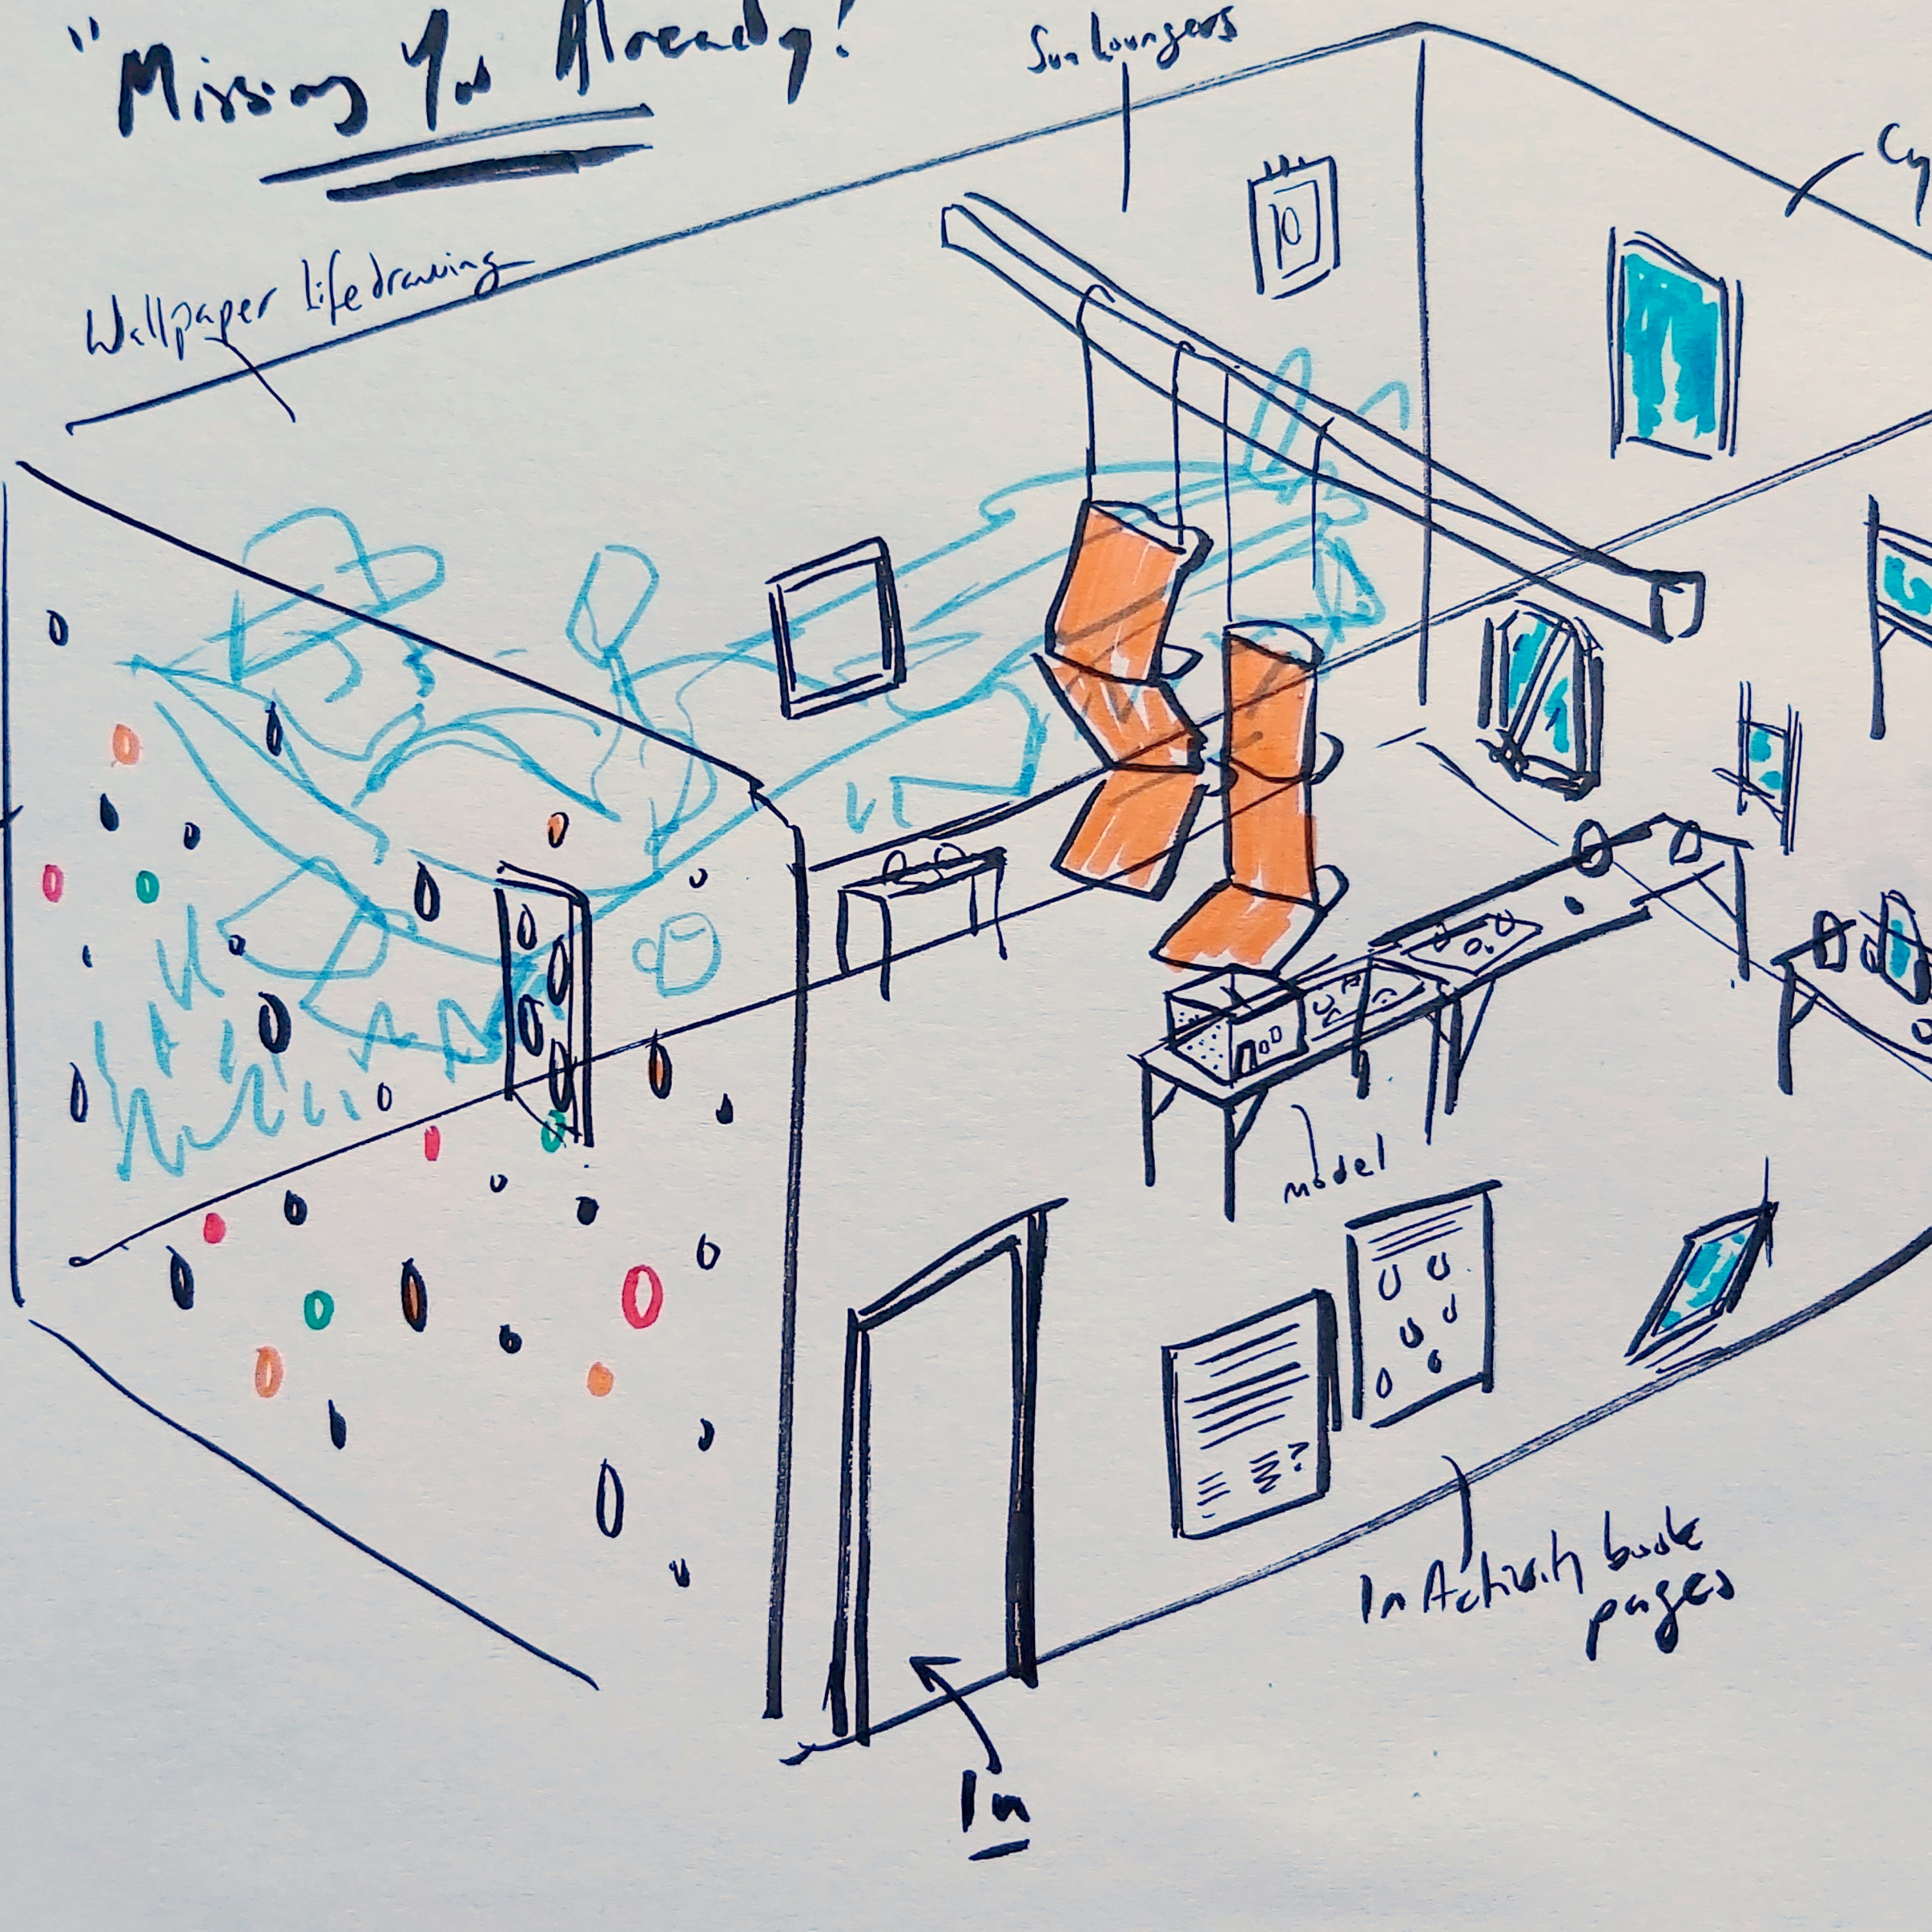 "Missing You Already!
Sun Loungers
Cy
Wallpaper life drawing
model
In Activity book
pages
In